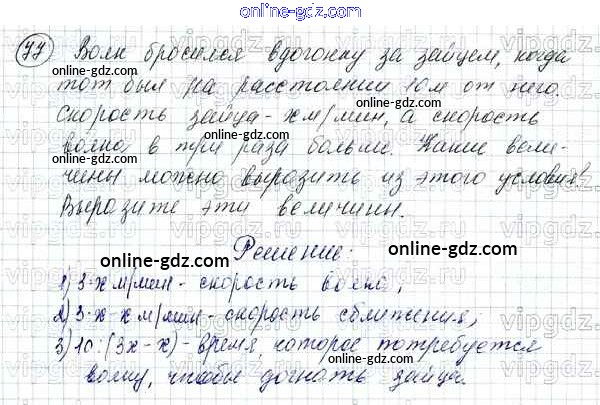 online-gdz.com
77 Волк бросился вдогонку за зайцем, когда
online-gdz.com online-gdz.com
тот был на расстоянии 10м от него.
online-gdz.com
Скорость зайца - х м/мин, а скорость
online-gdz.com
волка в три раза больше. Какие вели-
чины можно выразить из этого условия?
online-gdz.com
Выразите эти величины.
Решение.
online-gdz.com online-gdz.com
1) 3·х м/мин - скорость волка;
2) 3·х-х м/мин - скорость сближения;
online-gdz.com
3) 10:(3х-х) - время, которое потребуется
волку, чтобы догнать зайца.
online-gdz.com